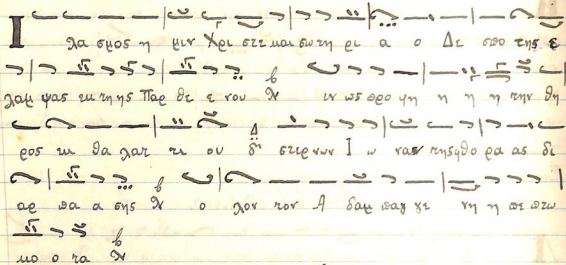 Ι λα σμος η μιν Χρι στε και σω τη ρι α ο Δε σπο της ε
λαμ ψας εκ της Παρ θε ε νου ιν ως προ φη η η η την θη
ρος εκ θα λατ τι ου στερ νων Ι ω ναν της φθο ρα ας δι
αρ πα α σης ο λον τον Α δαμ παγ γε νη η πε πτω
κο ο τα